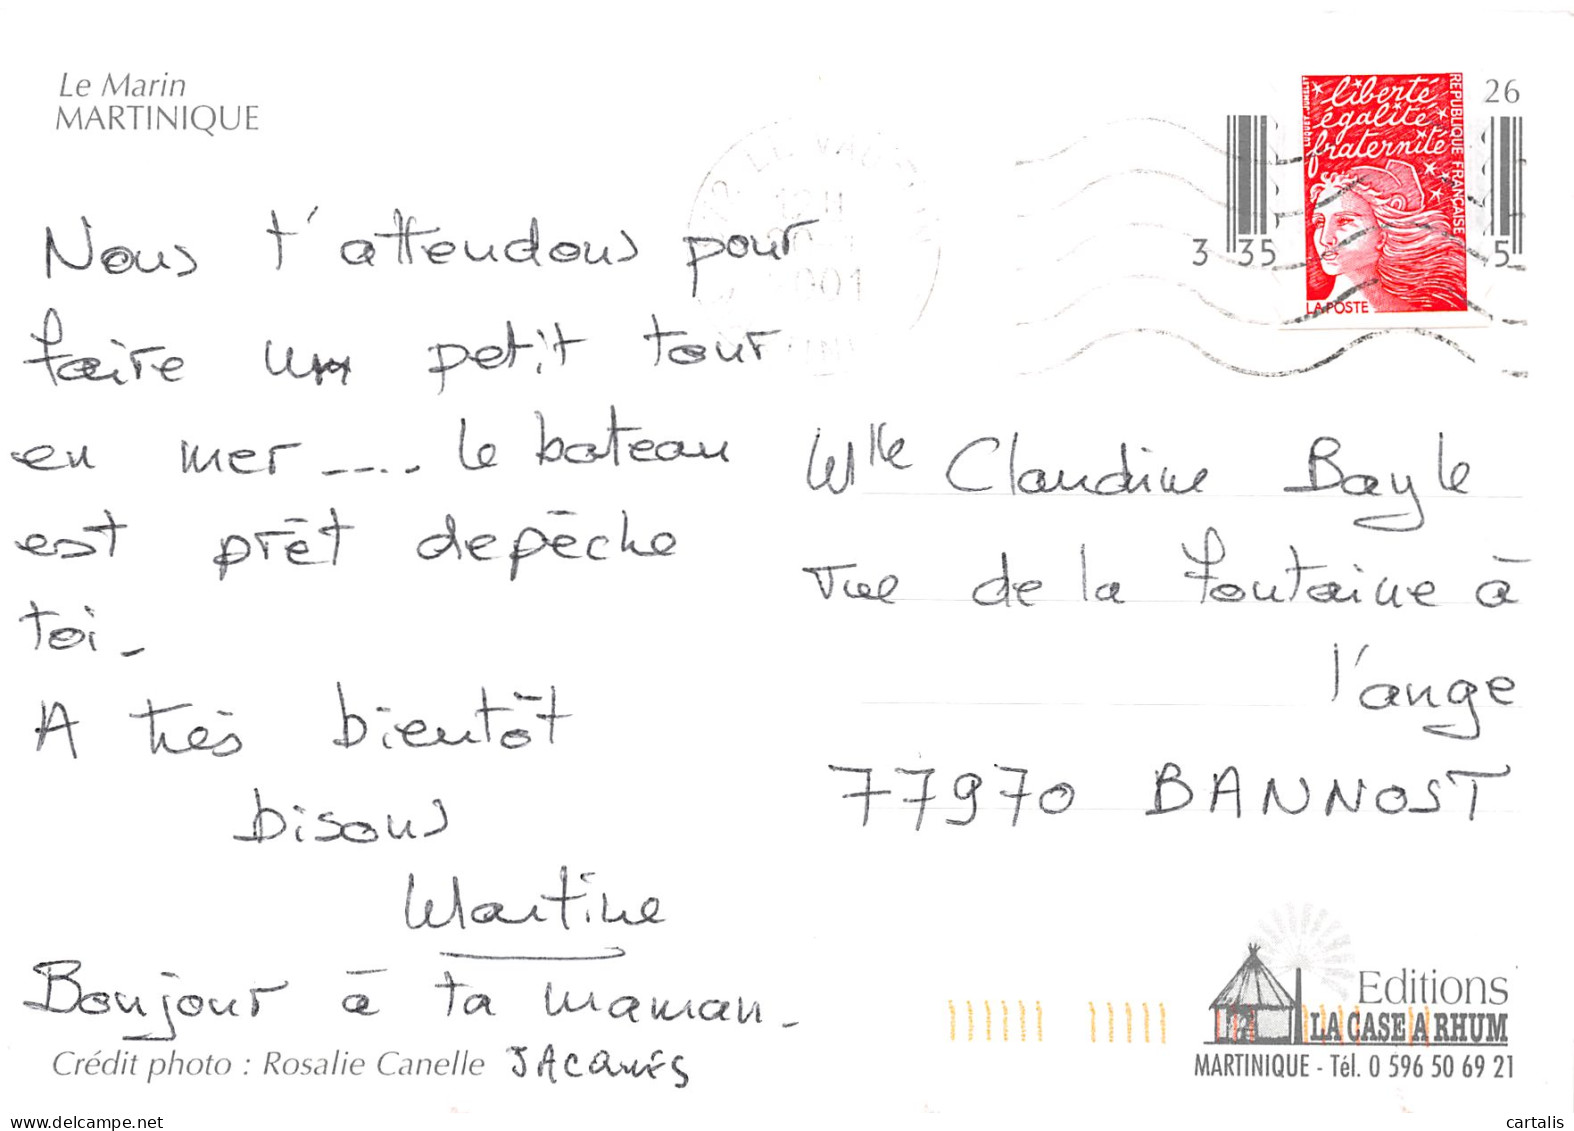 Le Marin
MARTINIQUE
Nous t'attendons pour
faire un petit tour
en mer ---.. le bateau
est prêt depèche
toi -
A très bientôt
bisous
Martine
Bonjour à ta maman -
Crédit photo : Rosalie Canelle JACQUES
liberté
égalité
fraternité
REPUBLIQUE FRANÇAISE
LA POSTE
26
3 35
5
Mlle Claudine Bayle
rue de la fontaine à
l'ange
77970 BANNOST
Editions
LA CASE A RHUM
MARTINIQUE - Tél. 0 596 50 69 21
www.delcampe.net
cartalis